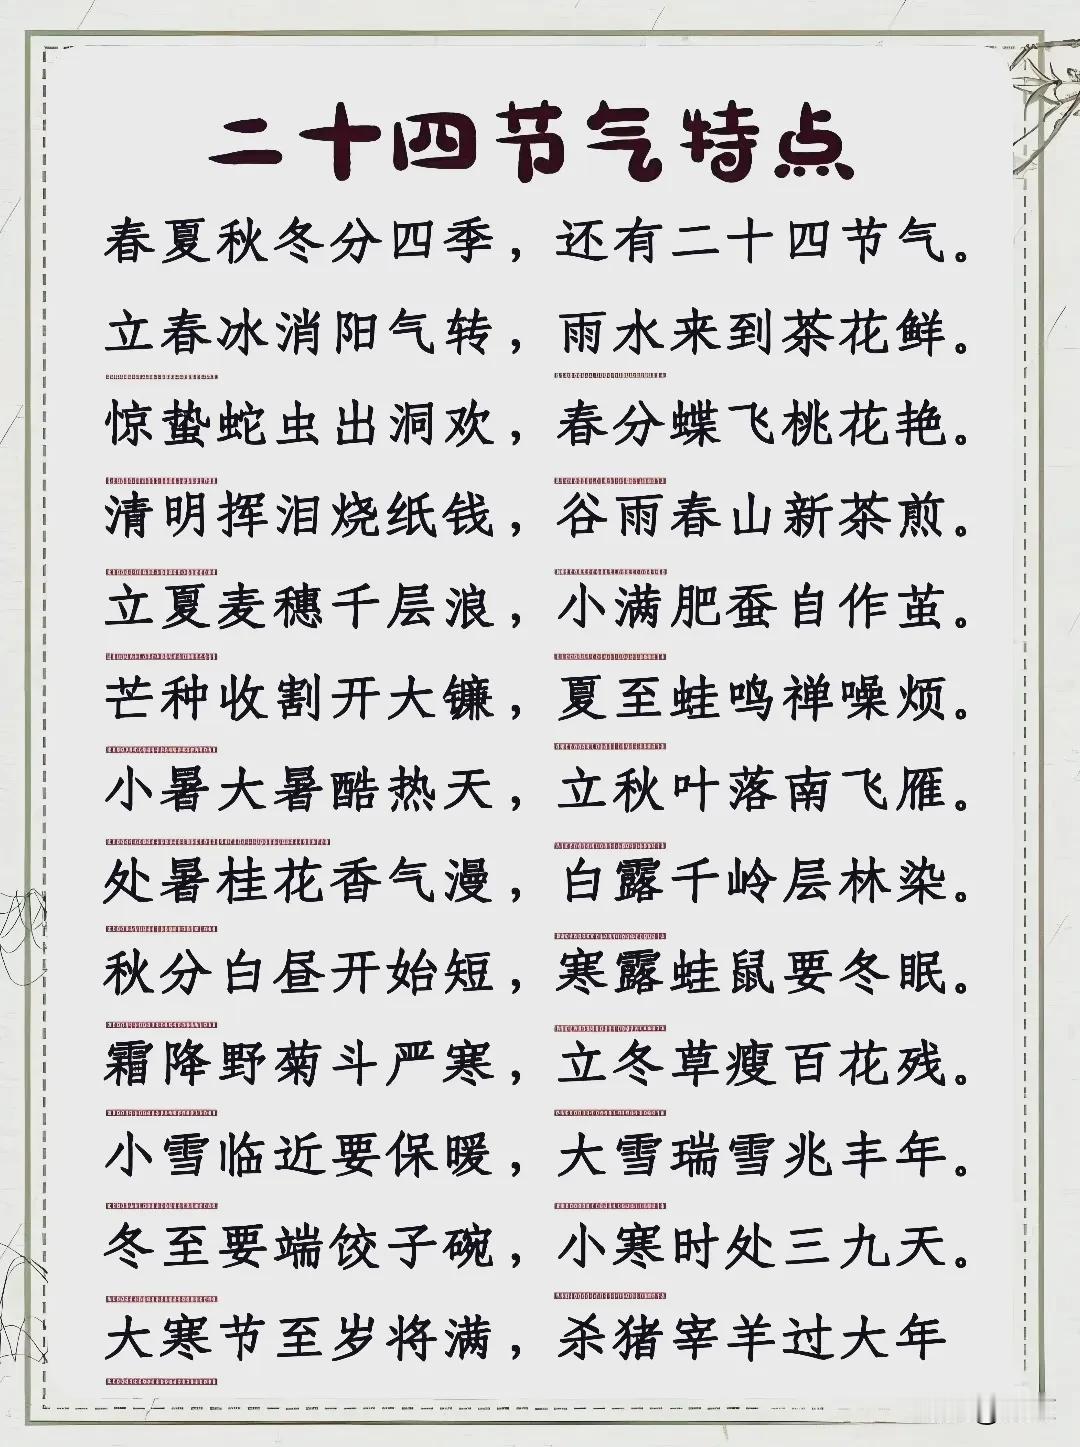 二十四节气特点
春夏秋冬分四季，还有二十四节气。
立春冰消阳气转，雨水来到茶花鲜。
惊蛰蛇虫出洞欢，春分蝶飞桃花艳。
清明挥泪烧纸钱，谷雨春山新茶煎。
立夏麦穗千层浪，小满肥蚕自作茧。
芒种收割开大镰，夏至蛙鸣禅噪烦。
小暑大暑酷热天，立秋叶落南飞雁。
处暑桂花香气漫，白露千岭层林染。
秋分白昼开始短，寒露蛙鼠要冬眠。
霜降野菊斗严寒，立冬草瘦百花残。
小雪临近要保暖，大雪瑞雪兆丰年。
冬至要端饺子碗，小寒时处三九天。
大寒节至岁将满，杀猪宰羊过大年